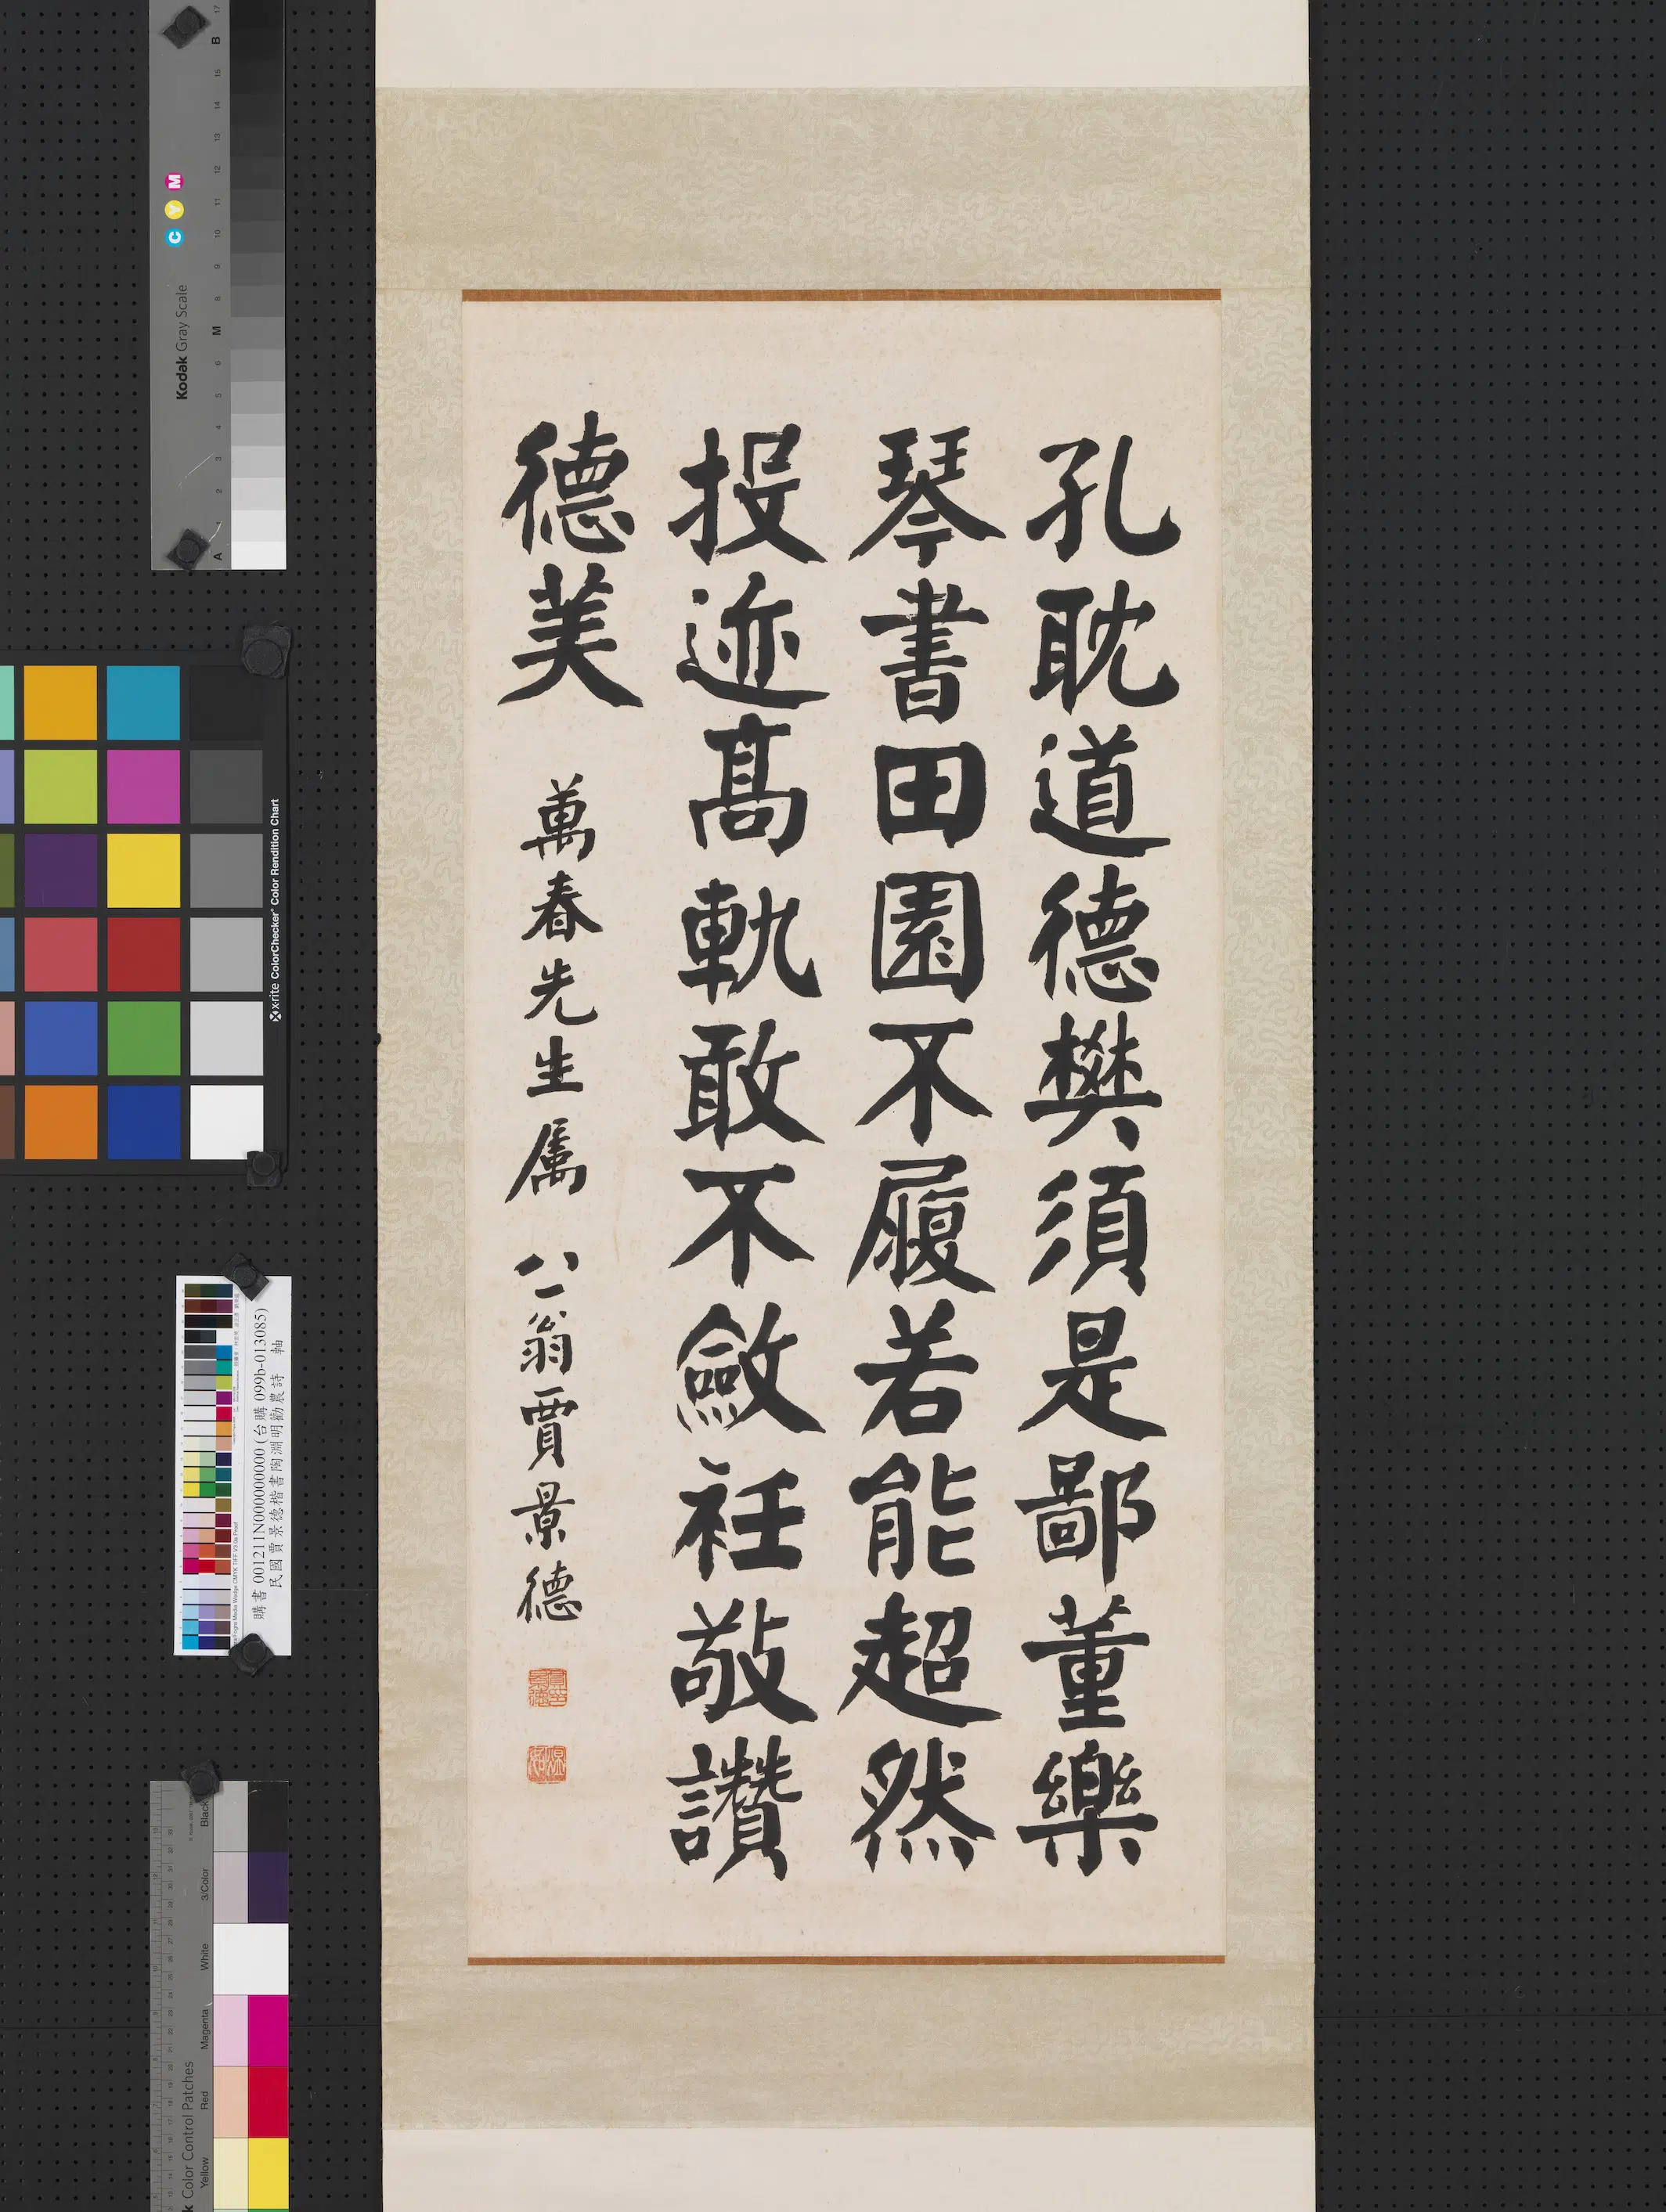 孔耽道德樊須是鄙董樂
琴書田園不履若能超然
投迹高軌敢不斂衽敬讚
德美
萬春先生屬 八一翁賈景德
賈景德印
煜如
Kodak Gray Scale
C Y M
A 1 2 3 4 5 6 M 8 9 10 11 12 13 14 15 B 17
x-rite ColorChecker Color Rendition Chart
購書 001211N000000000 (台購 099b-013085)
民國賈景德楷書陶淵明勸農詩 軸
k Color Control Patches
Yellow Red Magenta White 3/Color Black